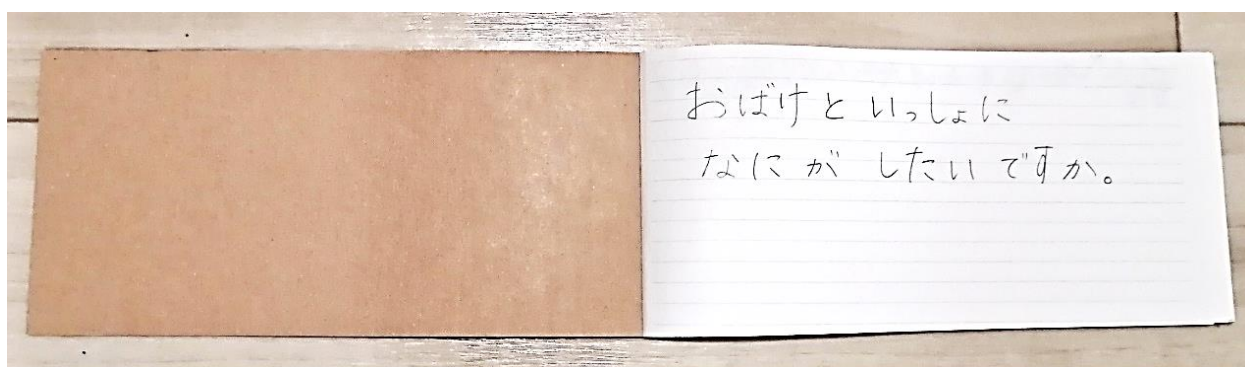 おばけと いっしょに
なにが したいですか。